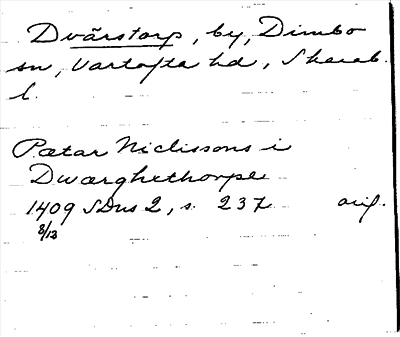 Dvärstorp, by, Dimbo
sn, Vartofta hd, Skarab.
l.
Pætar Niclissons i
Dwærghethorpe
1409 SDns 2, s. 237 orig.
8/12